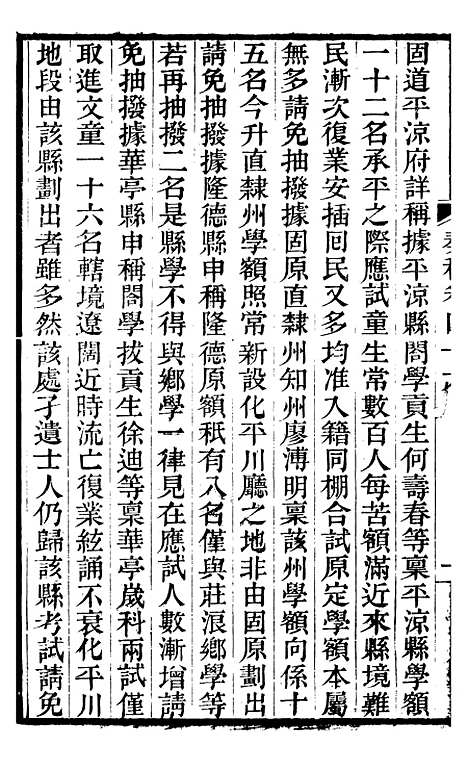 固道平涼府詳稱據平涼縣閤學貢生何壽春等稟平涼縣學額
一十二名承平之際應試童生常數百人每苦額滿近來縣境難
民漸次復業安插囘民又多均准入籍同棚合試原定學額本屬
無多請免抽撥據固原直隸州知州廖溥明稟該州學額向係十
五名今升直隸州學額照常新設化平川廳之地非由固原劃出
請免抽撥據隆德縣申稱隆德原額秖有八名僅與莊浪鄉學等
若再抽撥二名是縣學不得與鄉學一律見在應試人數漸增請
免抽撥據華亭縣申稱閤學拔貢生徐迪等稟華亭歲科兩試僅
取進文童一十六名轄境遼闊近時流亡復業絃誦不衰化平川
地段由該縣劃出者雖多然該處孑遺士人仍歸該縣考試請免